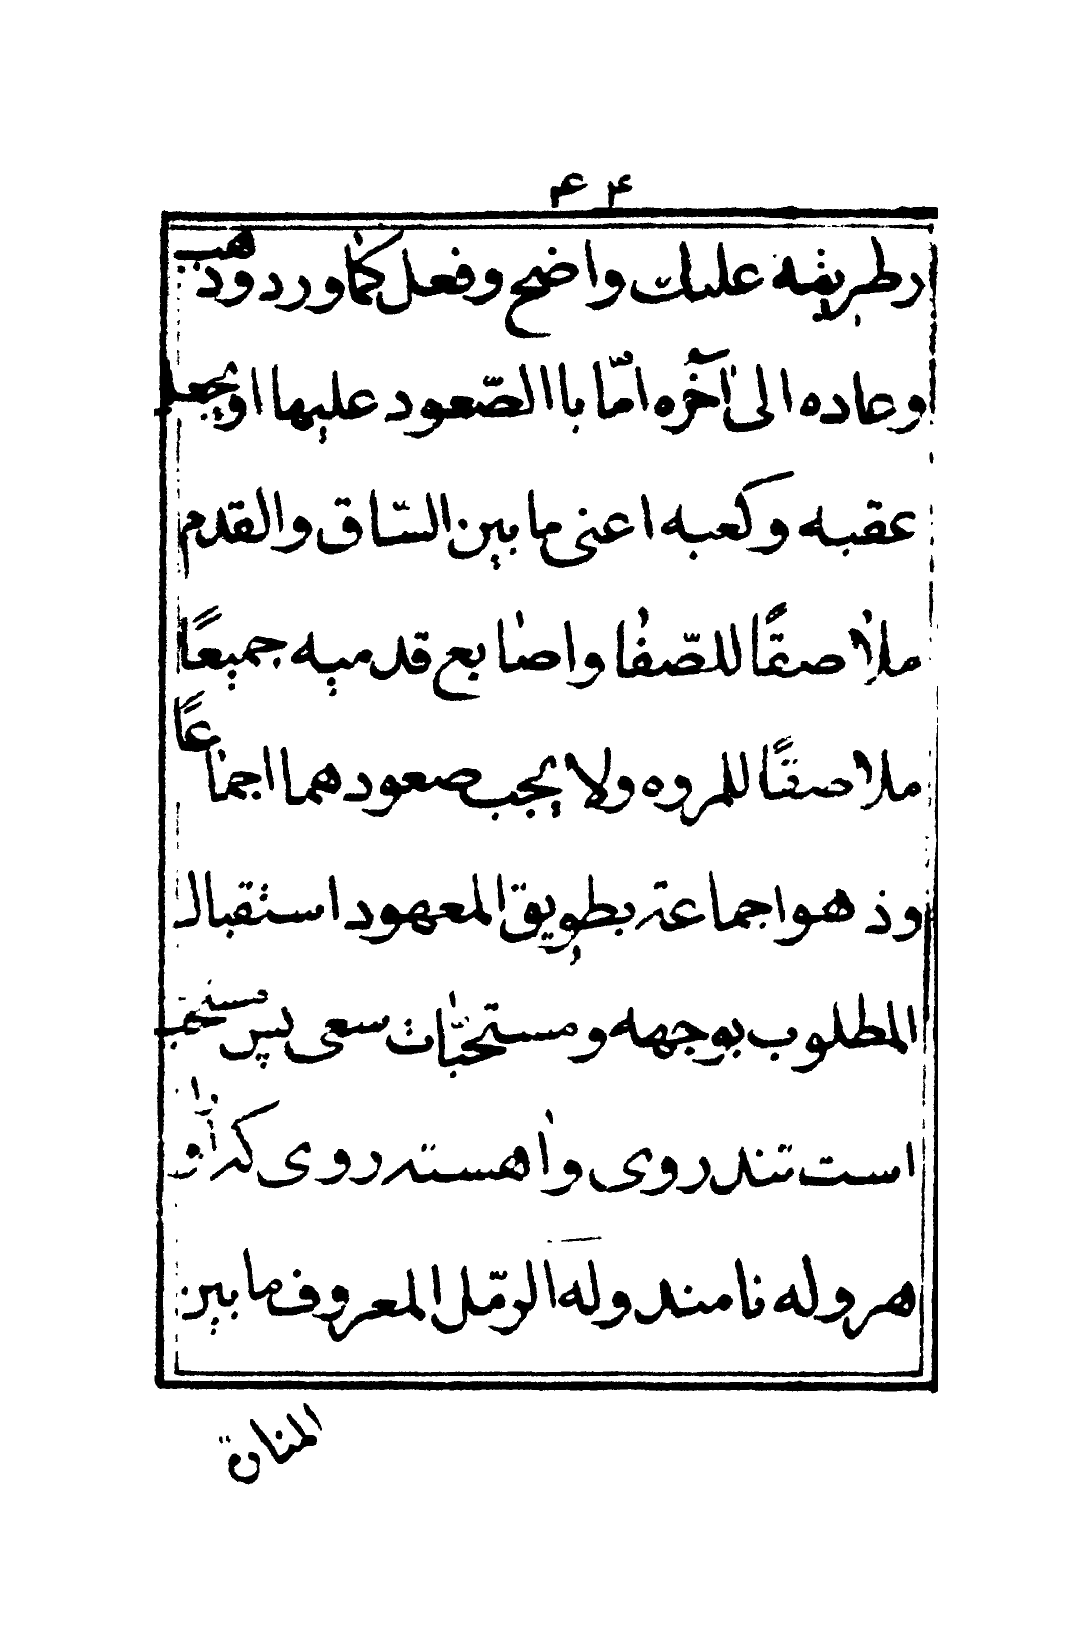 ۴۴
رطریقه علیك واضح وفعل كما ورد وذهب
وعاده الی آخره امّا با الصّعود علیها او یجعل
عقبه وكعبه اعنی ما بین السّاق والقدم
ملاصقًا للصّفا واصابع قدمیه جمیعًا
ملاصقًا للمروه ولا یجب صعودهما اجماعًا
وذهوا جماعة بطویق المعهود استقبال
المطلوب بوجهه ومستحبّات سعی پس مستحب
است تند روی واهسته روی كه او
هروله نامند وله الرمّل المعروف ما بین
المنارة